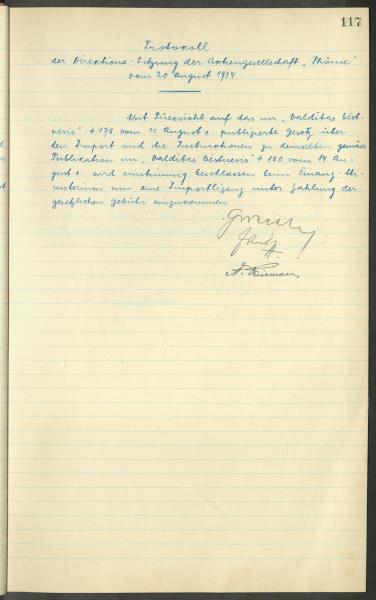 117
Protokoll
der Direktions-Sitzung der Aktiengesellschaft „Phönix“
vom 20. August 1934
Mit Hinsicht auf das im „Valdibas Vēst-
nesis“ # 178 vom 11. August c. publizierte Gesetz über
den Import und die Instruktionen zu demselben gemäss
Publikation im „Valdibas Vēstnesis“ # 180 vom 14. Au-
gust c. wird einstimmig beschlossen beim Finanz-Mi-
nisterium um eine Importlizenz unter Zahlung der
gesetzlichen Gebühr einzukommen.